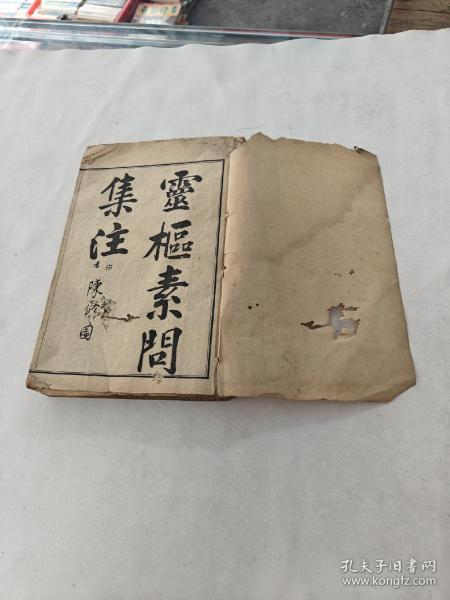 靈樞素問
集注
陳修園
孔夫子旧书网
www.kongfz.com